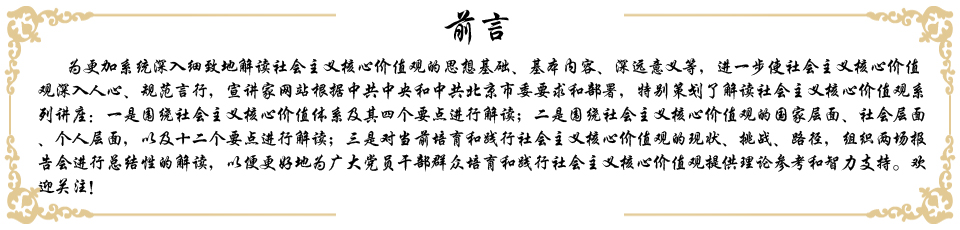 前言
为更加系统深入细致地解读社会主义核心价值观的思想基础、基本内容、深远意义等，进一步使社会主义核心价值
观深入人心、规范言行，宣讲家网站根据中共中央和中共北京市委要求和部署，特别策划了解读社会主义核心价值观系
列讲座：一是围绕社会主义核心价值体系及其四个要点进行解读；二是围绕社会主义核心价值观的国家层面、社会层面
、个人层面，以及十二个要点进行解读；三是对当前培育和践行社会主义核心价值观的现状、挑战、路径，组织两场报
告会进行总结性的解读，以便更好地为广大党员干部群众培育和践行社会主义核心价值观提供理论参考和智力支持。欢
迎关注！